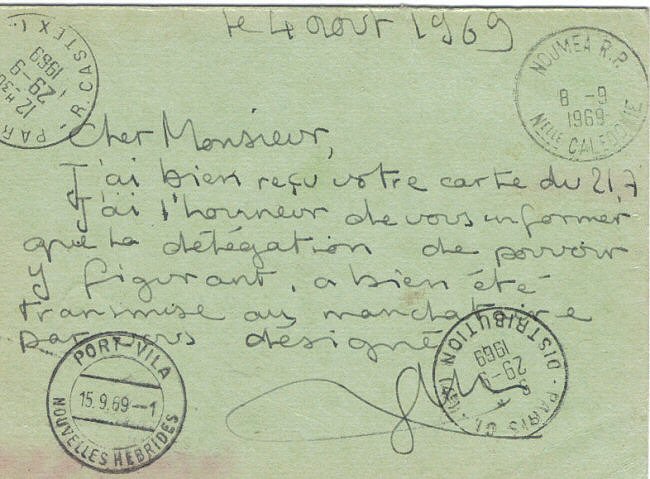 le 4 aout 1969
PAR R. CASTEX
12 H30
29-9
1969
NOUMEA R.P.
8 -9
1969
Nelle CALEDONIE
Cher Monsieur,
J'ai bien reçu votre carte du 21,7
J'ai l'honneur de vous informer
que la délégation de pouvoir
y figurant, a bien été
transmise au mandataire
par vous désigné
PORT-VILA
15.9.69--1
NOUVELLES HEBRIDES
PARIS
29-9
1969
DISTRIBUTION